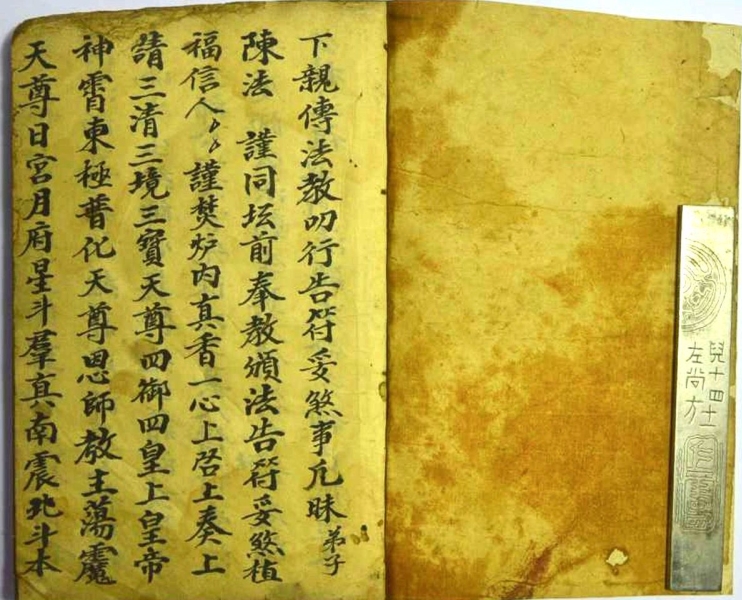 下親傳法教叨行告符妥煞事凡昧弟子
陳法 謹同坛前奉教頒法告符妥煞植
福信人 謹焚炉内真香一心上啓上奏上
請三清三境三寳天尊四御四皇上皇帝
神霄東極普化天尊恩師教主蕩魔
天尊日宮月府星斗羣真南震北斗本
兒十四十二
左尚方